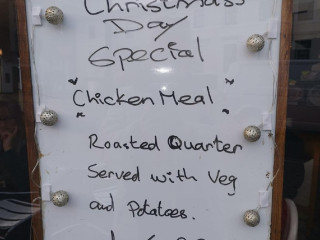 Christmass
Day
Special
"Chicken Meal"
Roasted Quarter
Served with Veg
and Potatoes.